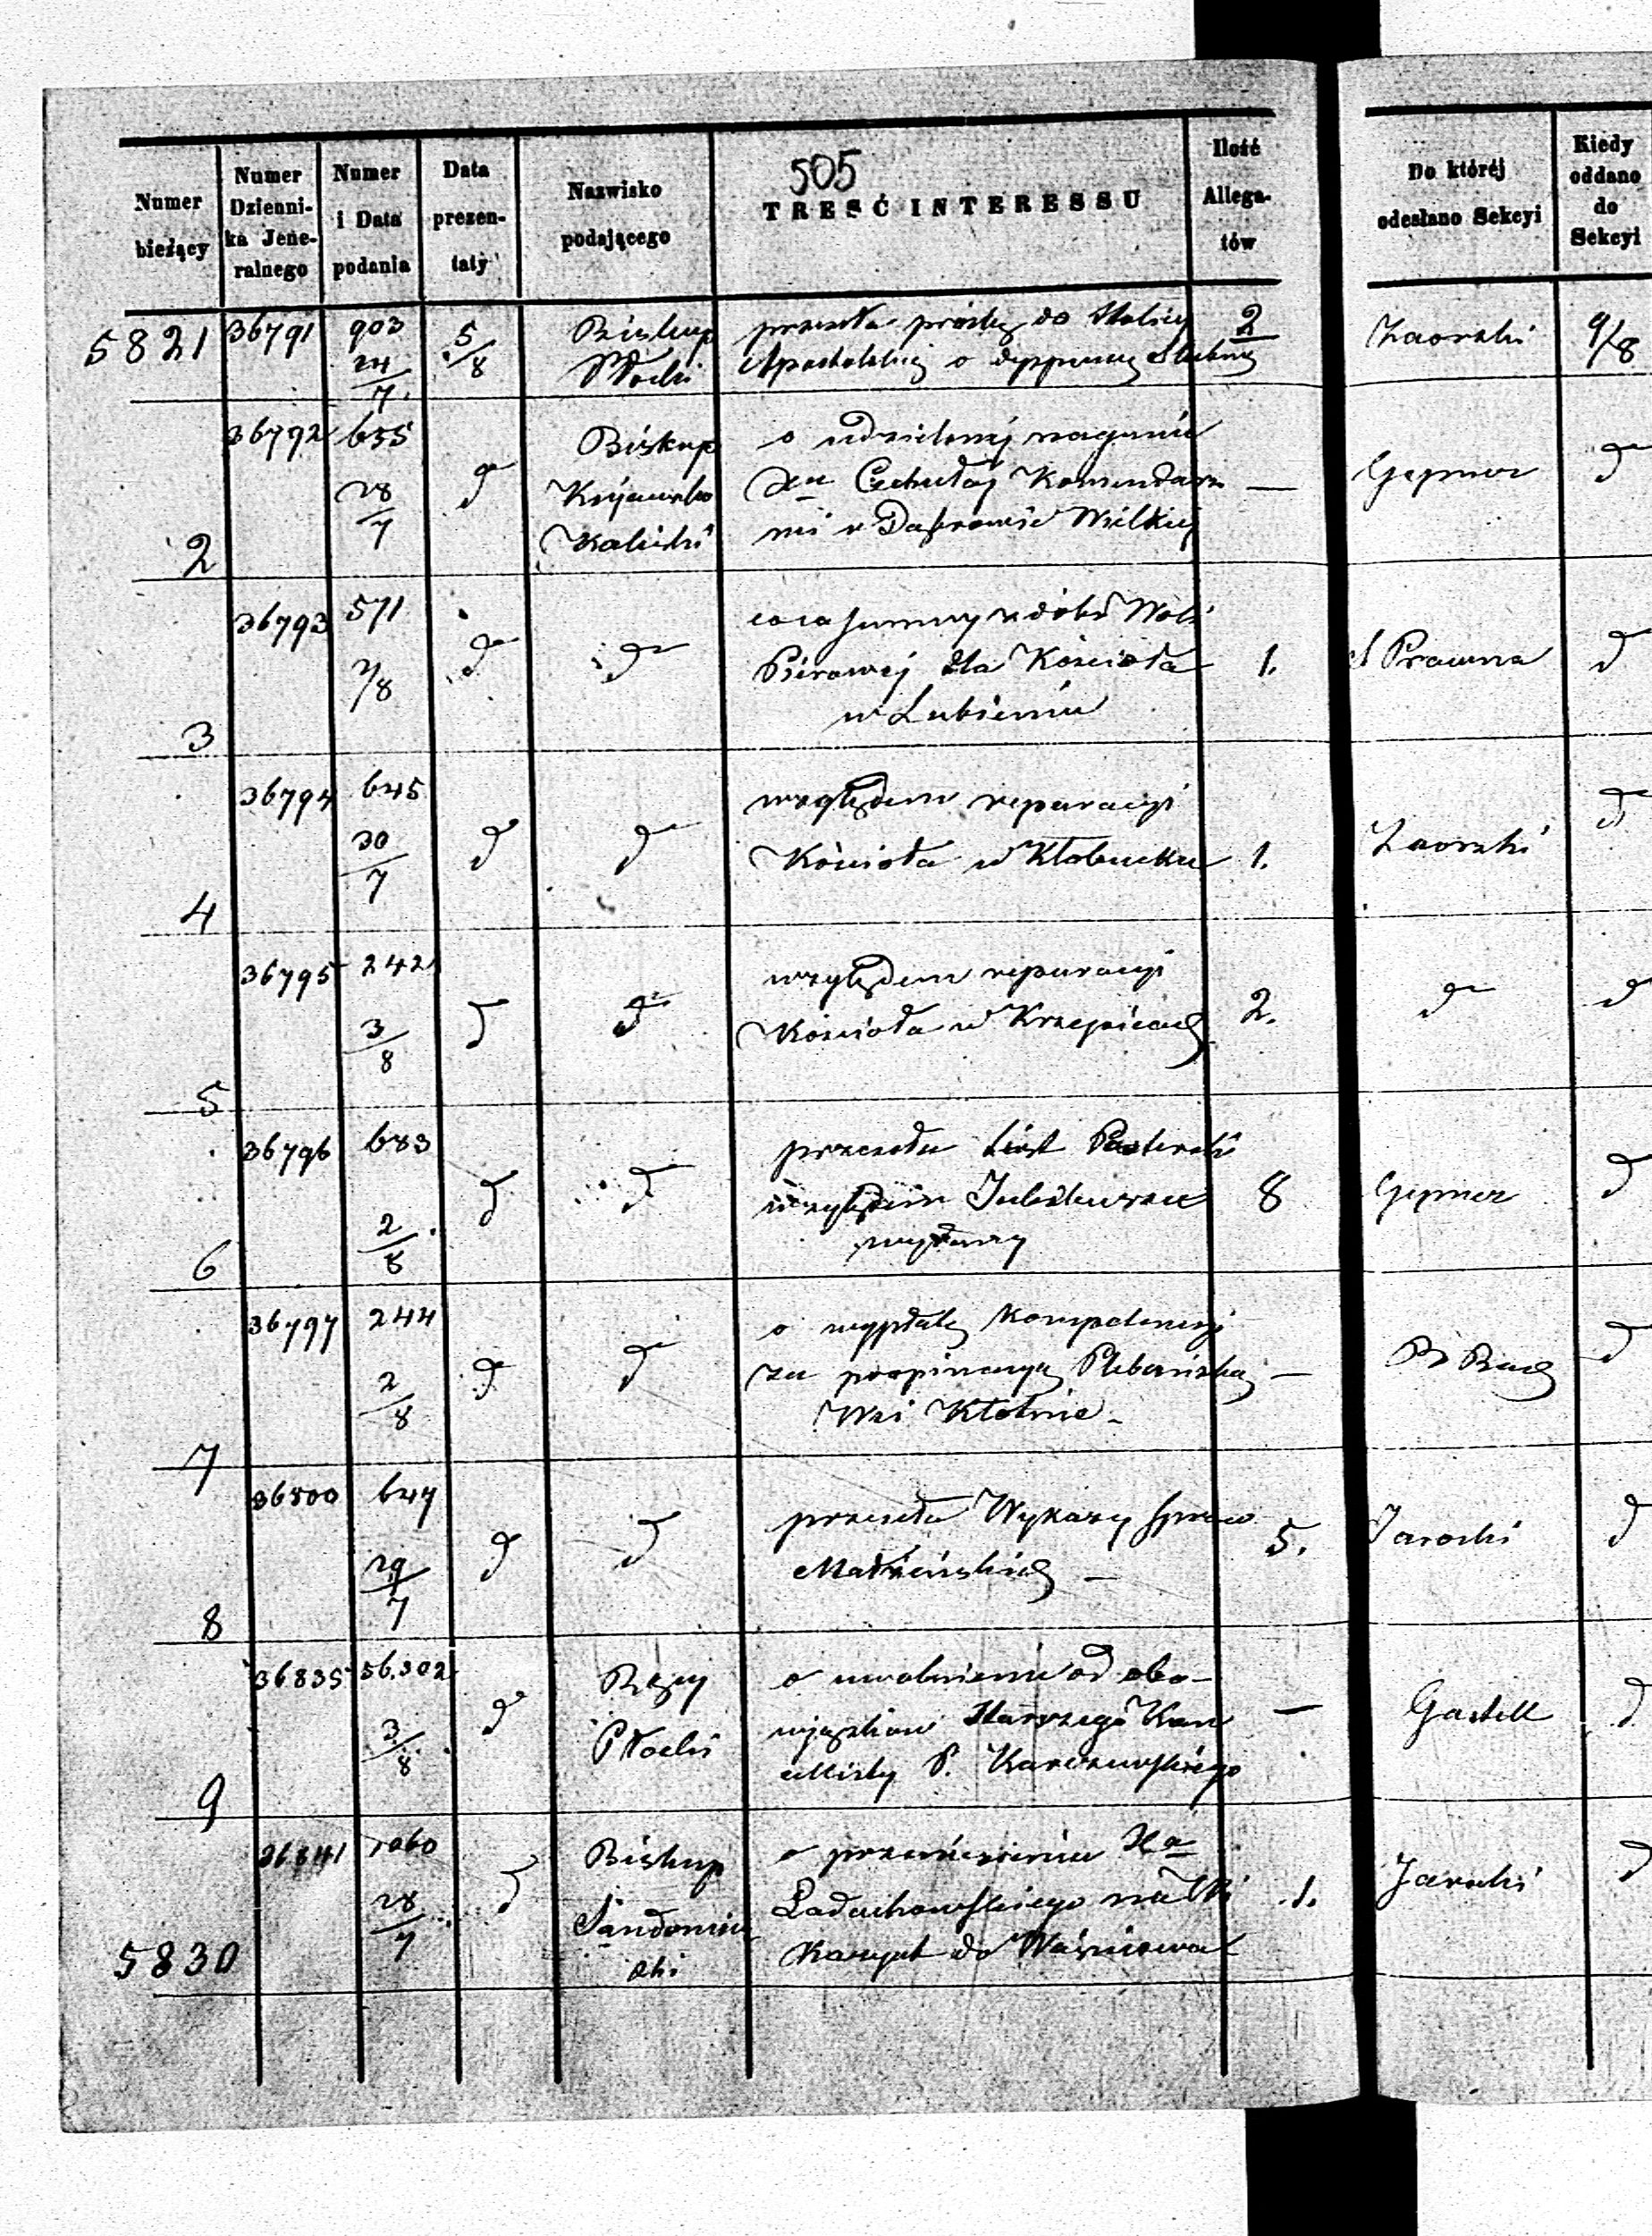 505
Numer bieżący
Numer Dzienni-ka Jene-ralnego
Numer i Data podania
Data prezen-taty
Nazwisko podającego
TREŚĆ INTERESSU
Ilość Allega-tów
Do któréj odesłano Sekcyi
Kiedy oddano do Sekcyi
5821 36791 903 24/7 5/8 Biskup Płocki
przesyła prośbę do Stolicy 2 Zaorski 9/8
Apostolskiej o dyspensę Ślubną
2 36792 655 28/7 d° Biskup Kujawsko Kaliski
o udzielonéj naganie
Xu Cechulaj Komendarzu — Gepner d°
mi w Dąbrowie Wielkiej
3 36793 571 2/8 d° d°
coca summy z dóbr Woli
Pierowej dla Kościoła 1. Prawna d°
w Lubieniu
4 36794 645 30/7 d° d°
względem reparacyi
Kościoła w Kłobucku 1. Zaorski d°
5 36795 242 3/8 d° d°
względem reparacyi
Kościoła w Krzepicach 2. d° d°
6 36796 683 2/8 d° d°
przesyła List Pasterski
względem Jubileuszu 8 Gepner d°
wydany
7 36797 244 2/8 d° d°
o wypłatę Kompetencyi
za propinacyę Plebańską — d°
Wsi Kłótnie
8 36800 647 29/7 d° d°
przesyła Wykazy spraw 5. Jarocki d°
Małżeńskich —
9 36835 56.302 3/8 d° Rząd Płocki
o uwolnienie od obo-
wiązków Starszego Kan — d°
celisty P. Karczewskiego
5830 36841 1060 28/7 d° Biskup Sandomier ski
o przeniesieniu Xa
Ładuchowskiego na 1. Jarocki d°
do Waśniowa